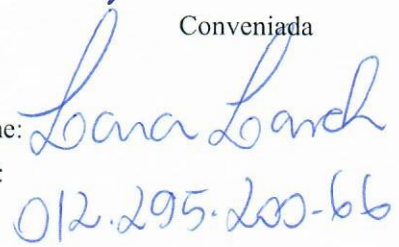 Conveniada
ne: Lara Larch
:
012.295.200-66